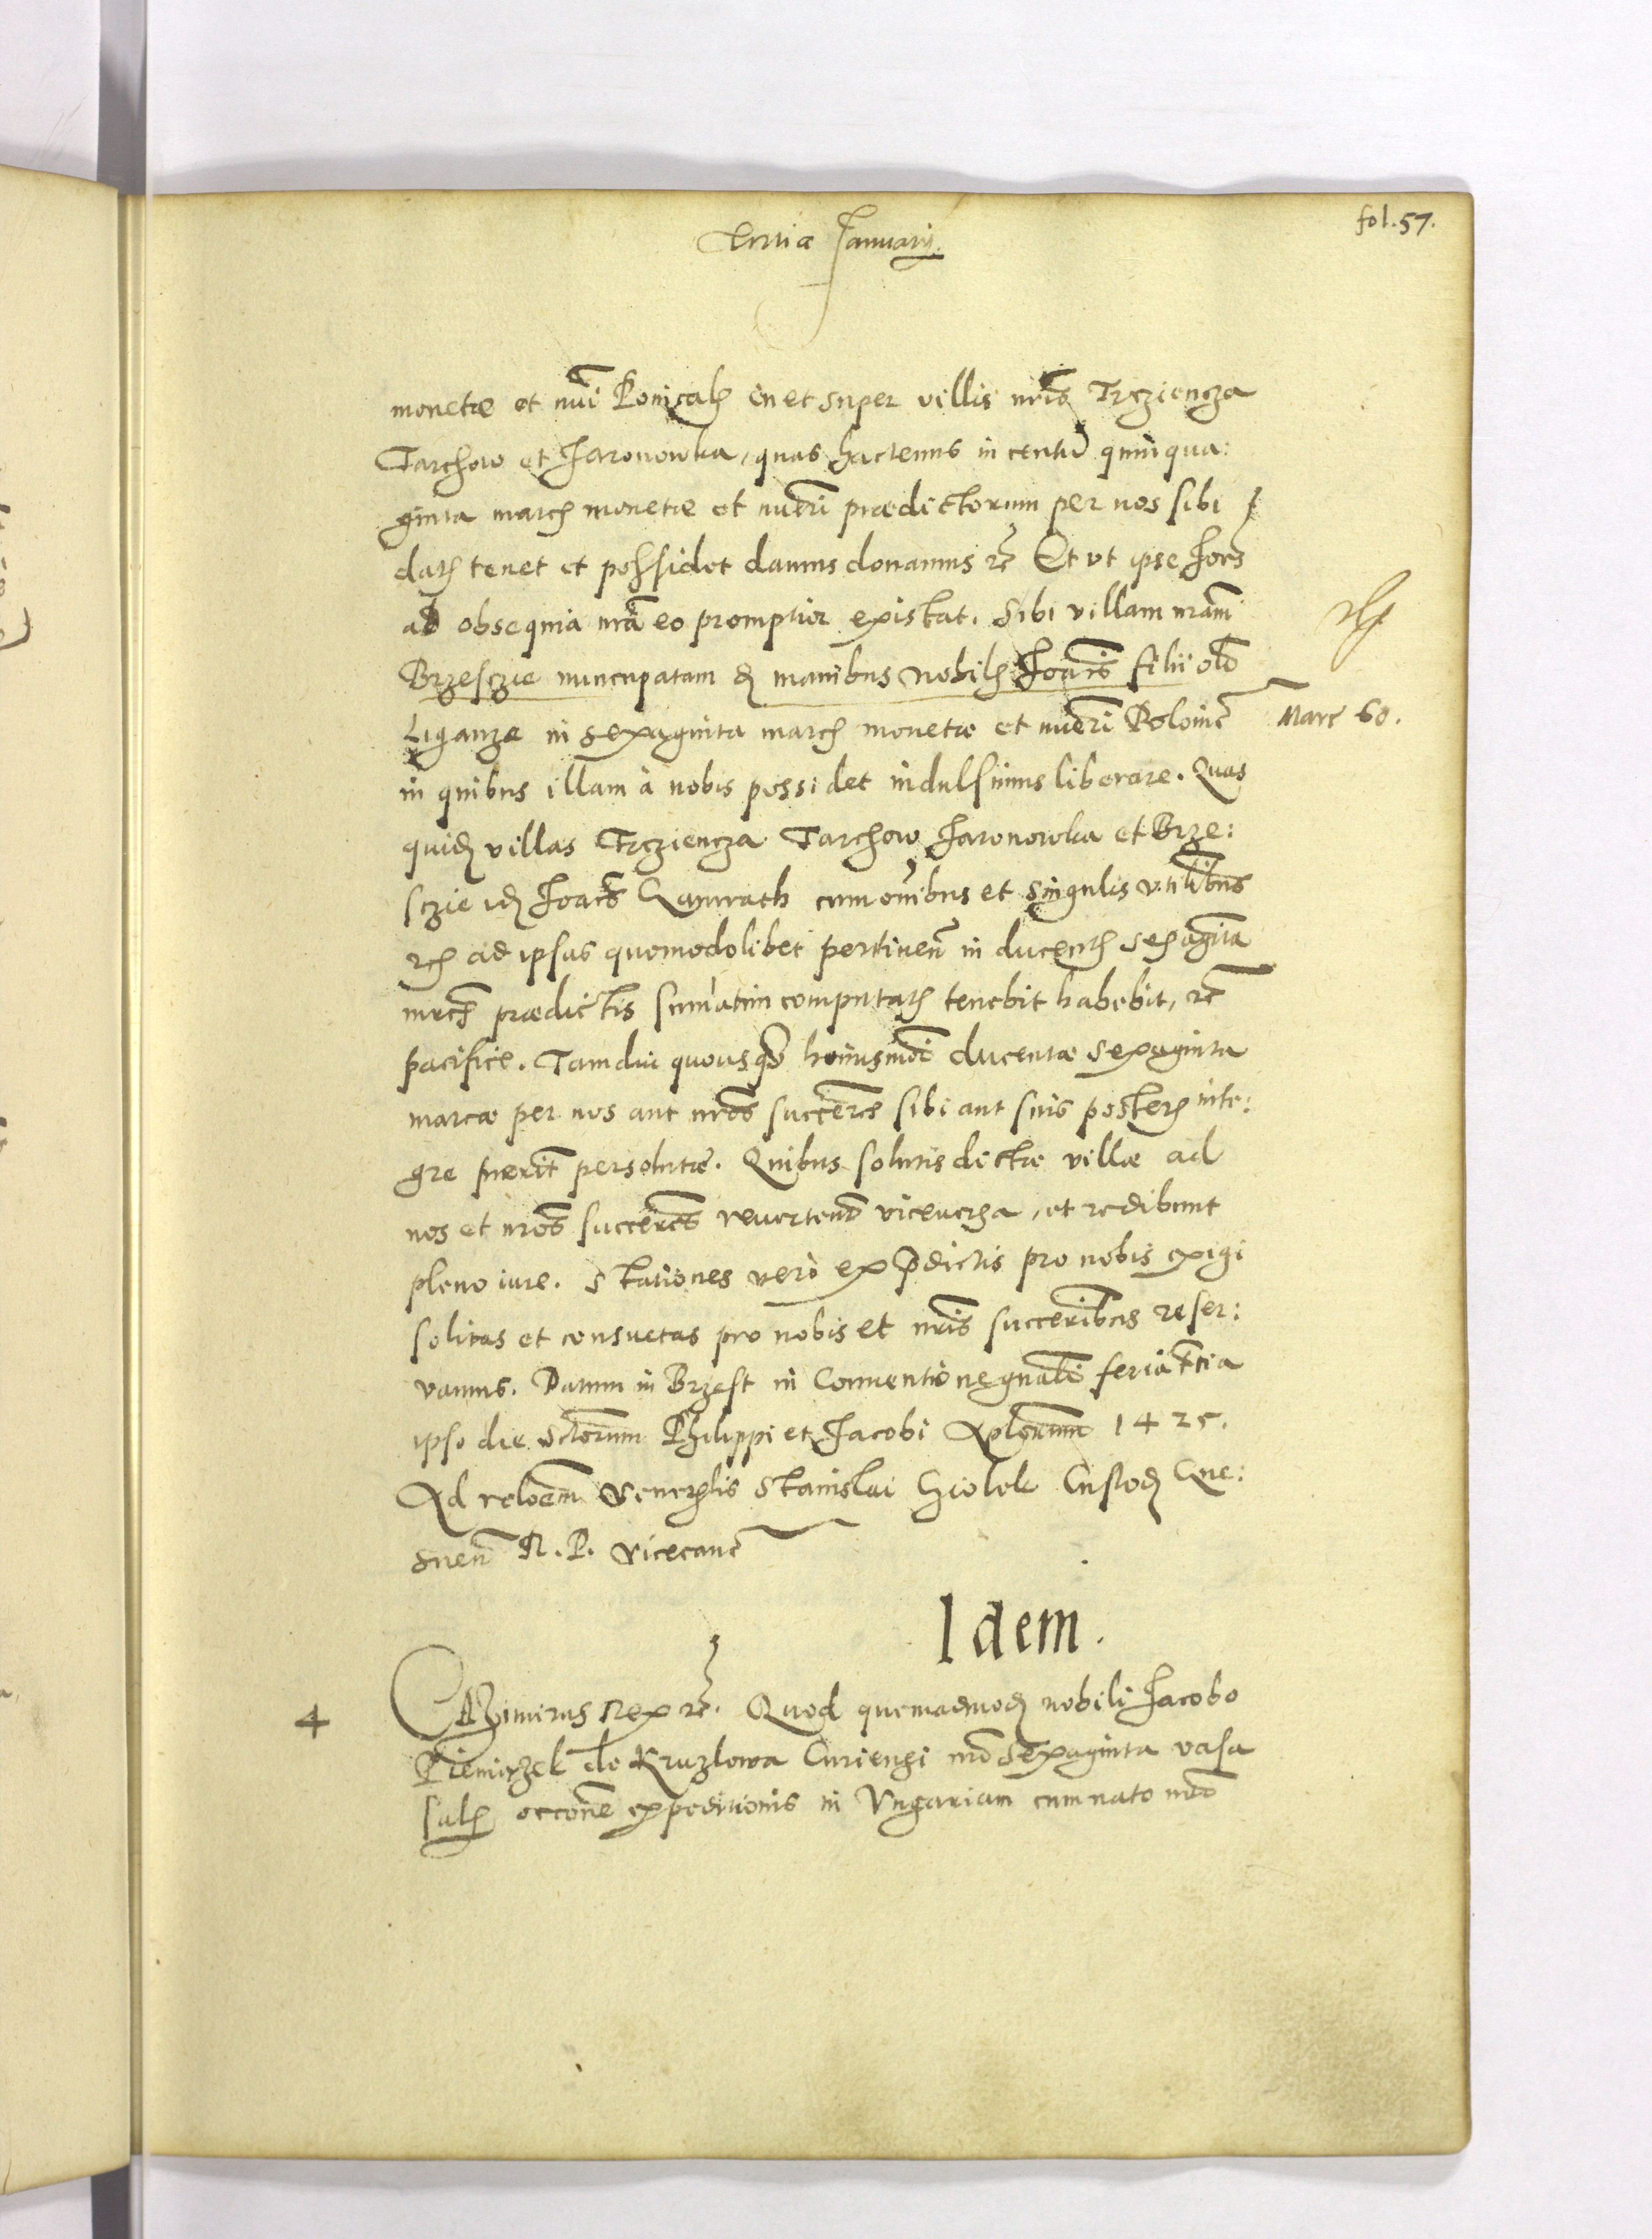 fol. 57.
Tertia January.
monetæ et nūi Ponicalʒ in et super villis nr̄is Trzciencza
Tarchow et Jaronowka, quas hactenus in centū quinqua:
ginta marcʒ monetæ et nūeri prædictorum per nos sibi
datʒ tenet et possidet damus donamus etc̃ Et vt ipse Joēs
ad obsequia nr̄a eo promptior existat. Sibi villam nr̄am
Brzesczie nuncupatam de manibus nobilʒ Joān̄is filii olī
Liganza in sexaginta marcʒ monetæ et nūeri Polonic̃
Marc 60.
in quibus illam à nobis possidet indulsimus liberare. Quas
quidʒ villas Trzciencza Tarchow Jaronowka et Brze:
sczie idʒ Joān̄s cum om̄ibus et singulis vtilībus
etcʒ ad ipsas quomodolibet pertinen̄ in ducentʒ sexaginta
mrc̃s prædictis summatim computatʒ tenebit habebit, etc̃
pacifice. Tamdiu quousqʒ huiusmōi ducentæ sexaginta
marcæ per nos aut nr̄os succ̄ores sibi aut suis posterʒ inte:
gre fuerīt persolutæ. Quibus solutis dictæ villæ ad
nos et nr̄os succ̄ores reuertend̄ viceuersa, et redibunt
pleno iure. Stationes verò ex p̄dictis pro nobis exigi
solitas et consuetas pro nobis et nr̄is succ̄oribus reser:
vamus. Datum in Brzest in Conuentione gn̄ali feria t̄tia
ipso die Sctōrum Philippi et Jacobi Apl̄orum 1425.
Ad relōem Venerʒlis Stanislai Cziolek Custodʒ Gne:
snen̄ R. P. vicecanc̃
Idem.
4
CAzimirus Rex etc̃. Quod quemadmodʒ nobili Jacobo
Pieniązek de Kruzlowa Curiensi nr̄o sexaginta vasa
salʒ occōne expeditionis in Vngariam cum nato nr̄o